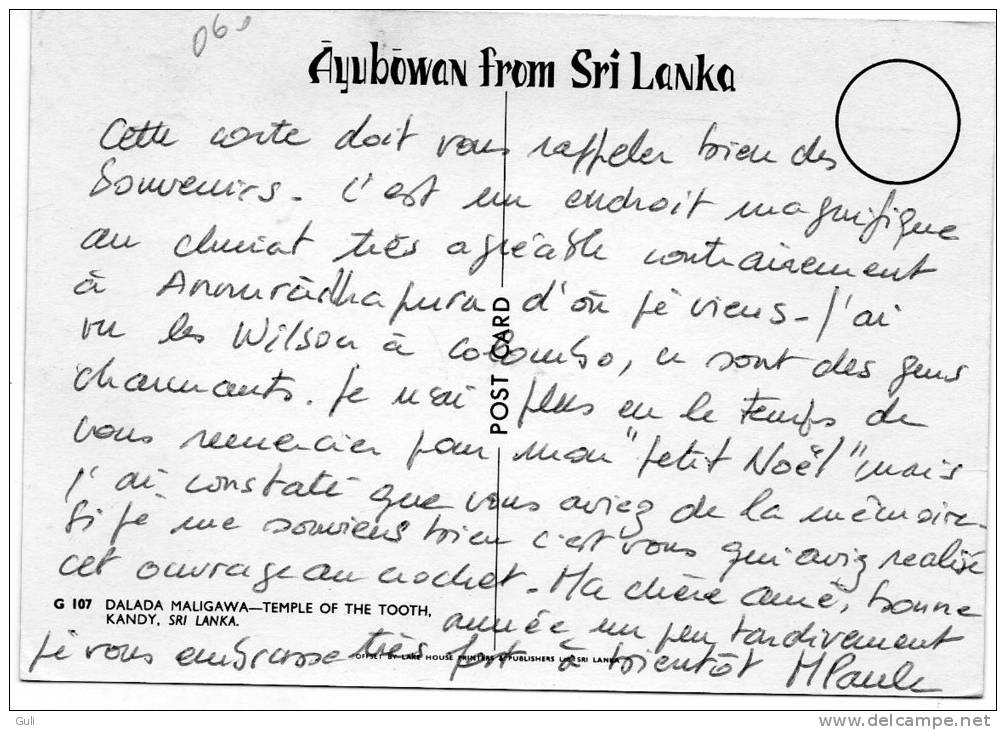 060
Āyubōwan from Sri Lanka
Cette carte doit vous rappeler bien des
Souvenirs - C'est un endroit magnifique
au climat très agréable contrairement
à Anourâdhapura d'où je viens - J'ai
vu les Wilson à Colombo, ce sont des gens
charmants. Je n'ai pas eu le temps de
vous remercier pour mon "petit Noël" mais
j'ai constaté que vous aviez de la mémoire -
Si je me souviens bien c'est vous qui aviez realisé
cet ouvrage au crochet. Ma chère amie, bonne
année un peu tardivement
je vous embrasse très fort à bientôt MPaule
POST CARD
G 107 DALADA MALIGAWA—TEMPLE OF THE TOOTH,
KANDY, SRI LANKA.
OFFSET BY LAKE HOUSE PRINTERS & PUBLISHERS SRI LANKA
Guli